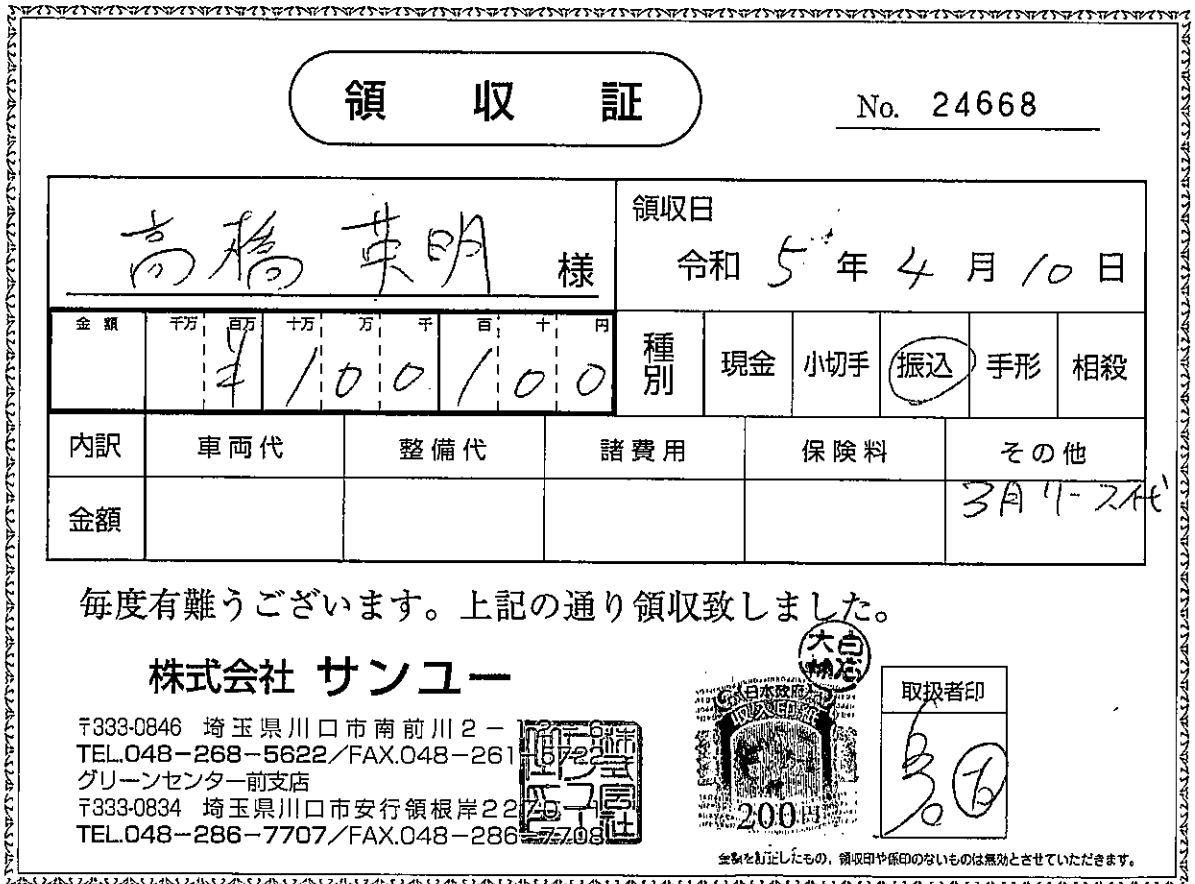 領収証
No. 24668
高橋 英明 様
領収日
令和 5 年 4 月 10 日
金額 千万 百万 十万 万 千 百 十 円
¥100100
種別 現金 小切手 振込 手形 相殺
内訳 車両代 整備代 諸費用 保険料 その他
金額 3月リース代
毎度有難うございます。上記の通り領収致しました。
株式会社 サンユー
〒333-0846 埼玉県川口市南前川2-
TEL.048-268-5622/FAX.048-261-6722
グリーンセンター前支店
〒333-0834 埼玉県川口市安行領根岸2270-1
TEL.048-286-7707/FAX.048-286-7708
日本政府
収入印紙
200円
取扱者印
金額を訂正したもの、領収印や係印のないものは無効とさせていただきます。